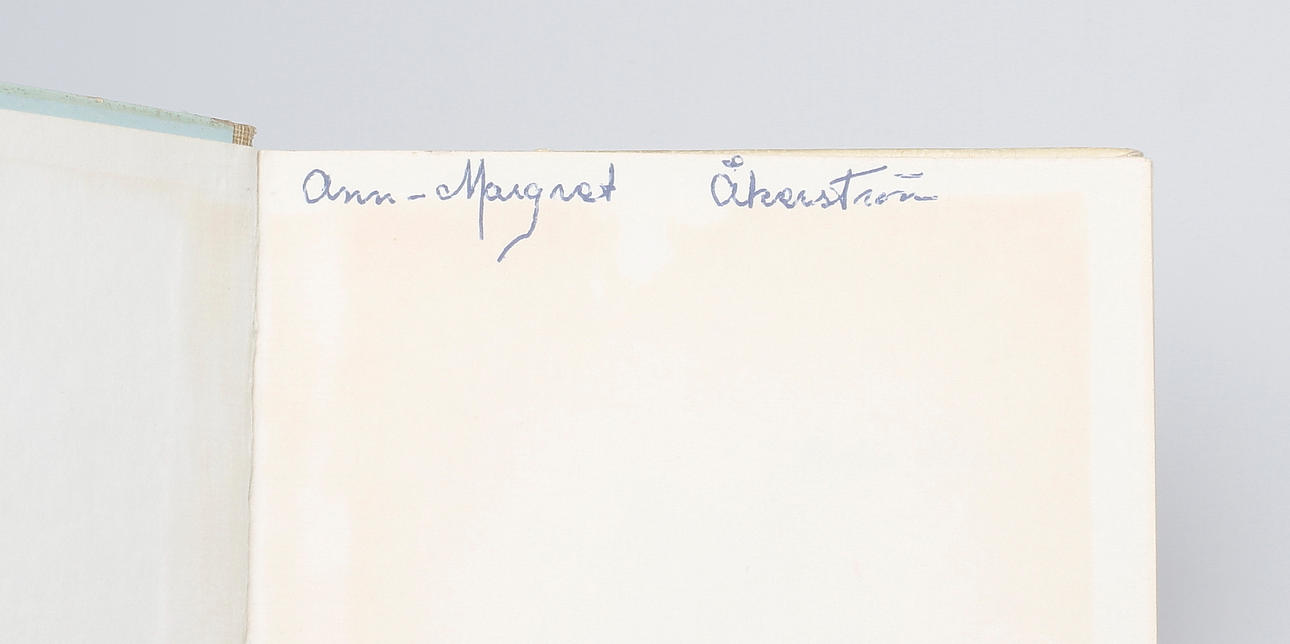 Ann-Margret Åkerström